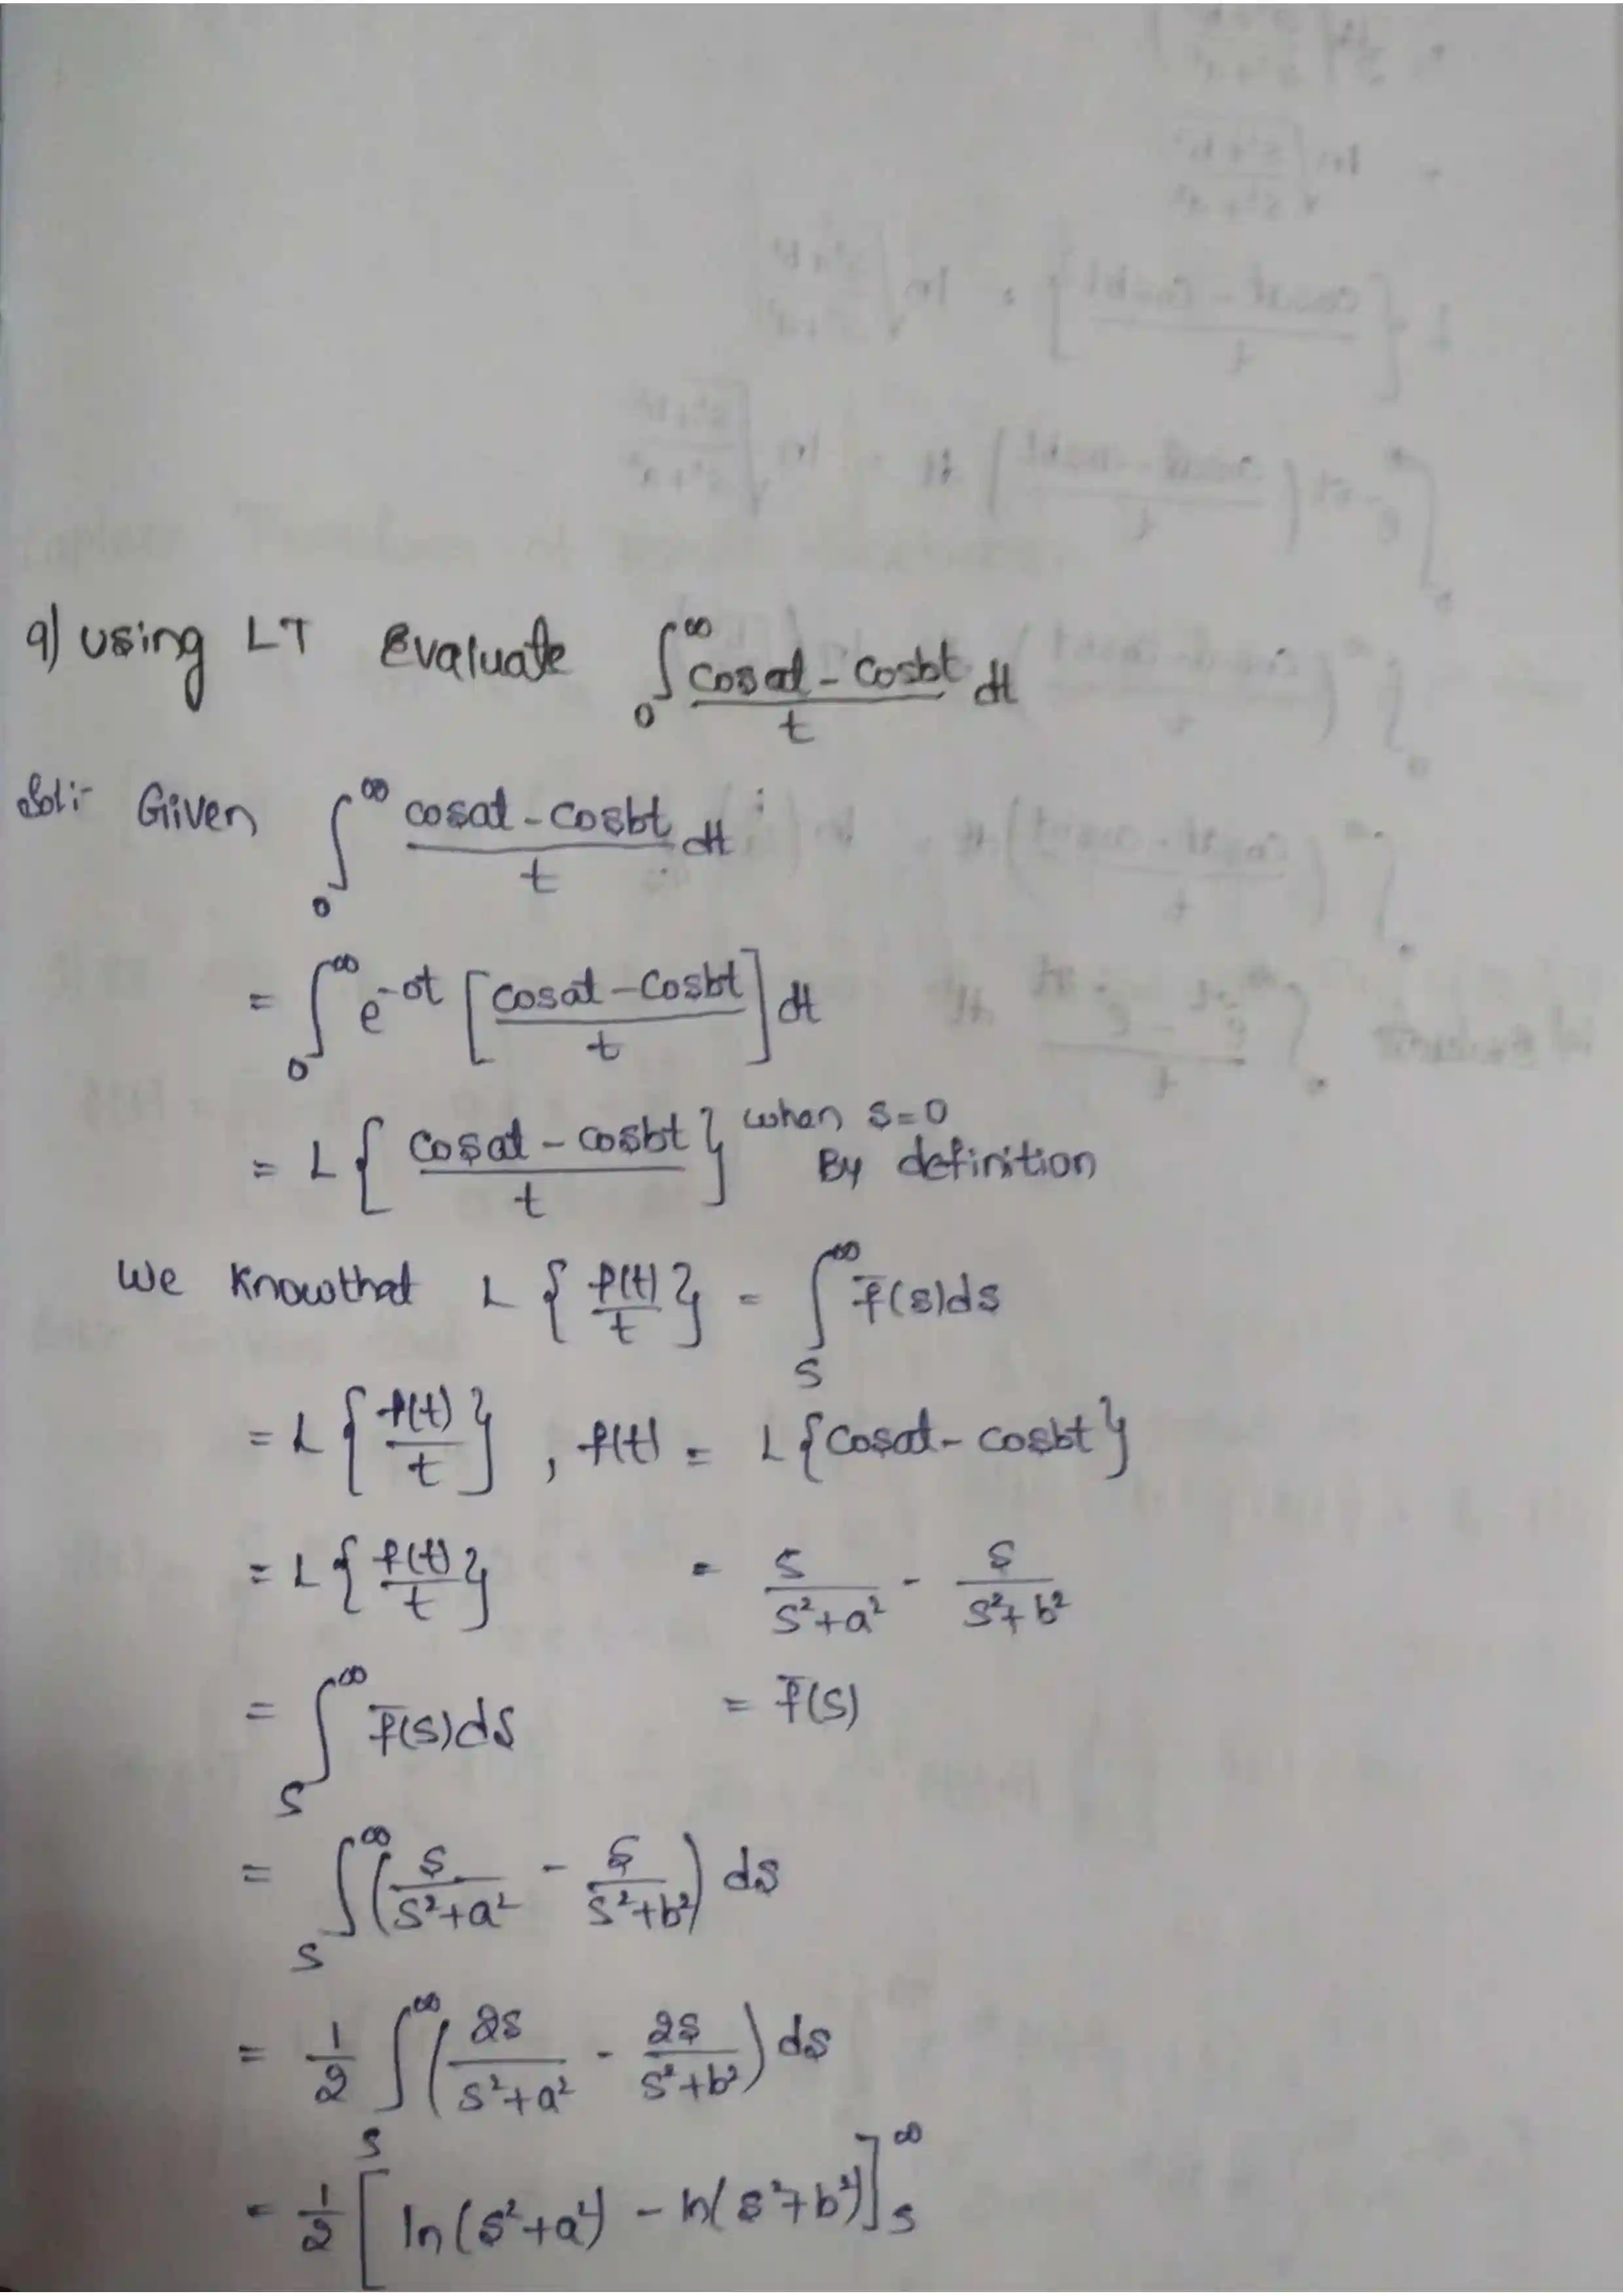 9) Using LT Evaluate ∫₀^∞ (cosat - cosbt)/t dt
Sol:- Given ∫₀^∞ (cosat - cosbt)/t dt
= ∫₀^∞ e^{-0t} [(cosat - cosbt)/t] dt
= L{(cosat - cosbt)/t} when s=0 By definition
We Know that L{f(t)/t} = ∫_s^∞ f̄(s)ds
= L{f(t)/t}, f(t) = L{cosat - cosbt}
= L{f(t)/t} = s/(s²+a²) - s/(s²+b²)
= ∫_s^∞ f̄(s)ds = f̄(s)
= ∫_s^∞ (s/(s²+a²) - s/(s²+b²)) ds
= 1/2 ∫_s^∞ (2s/(s²+a²) - 2s/(s²+b²)) ds
= 1/2 [ln(s²+a²) - ln(s²+b²)]_s^∞